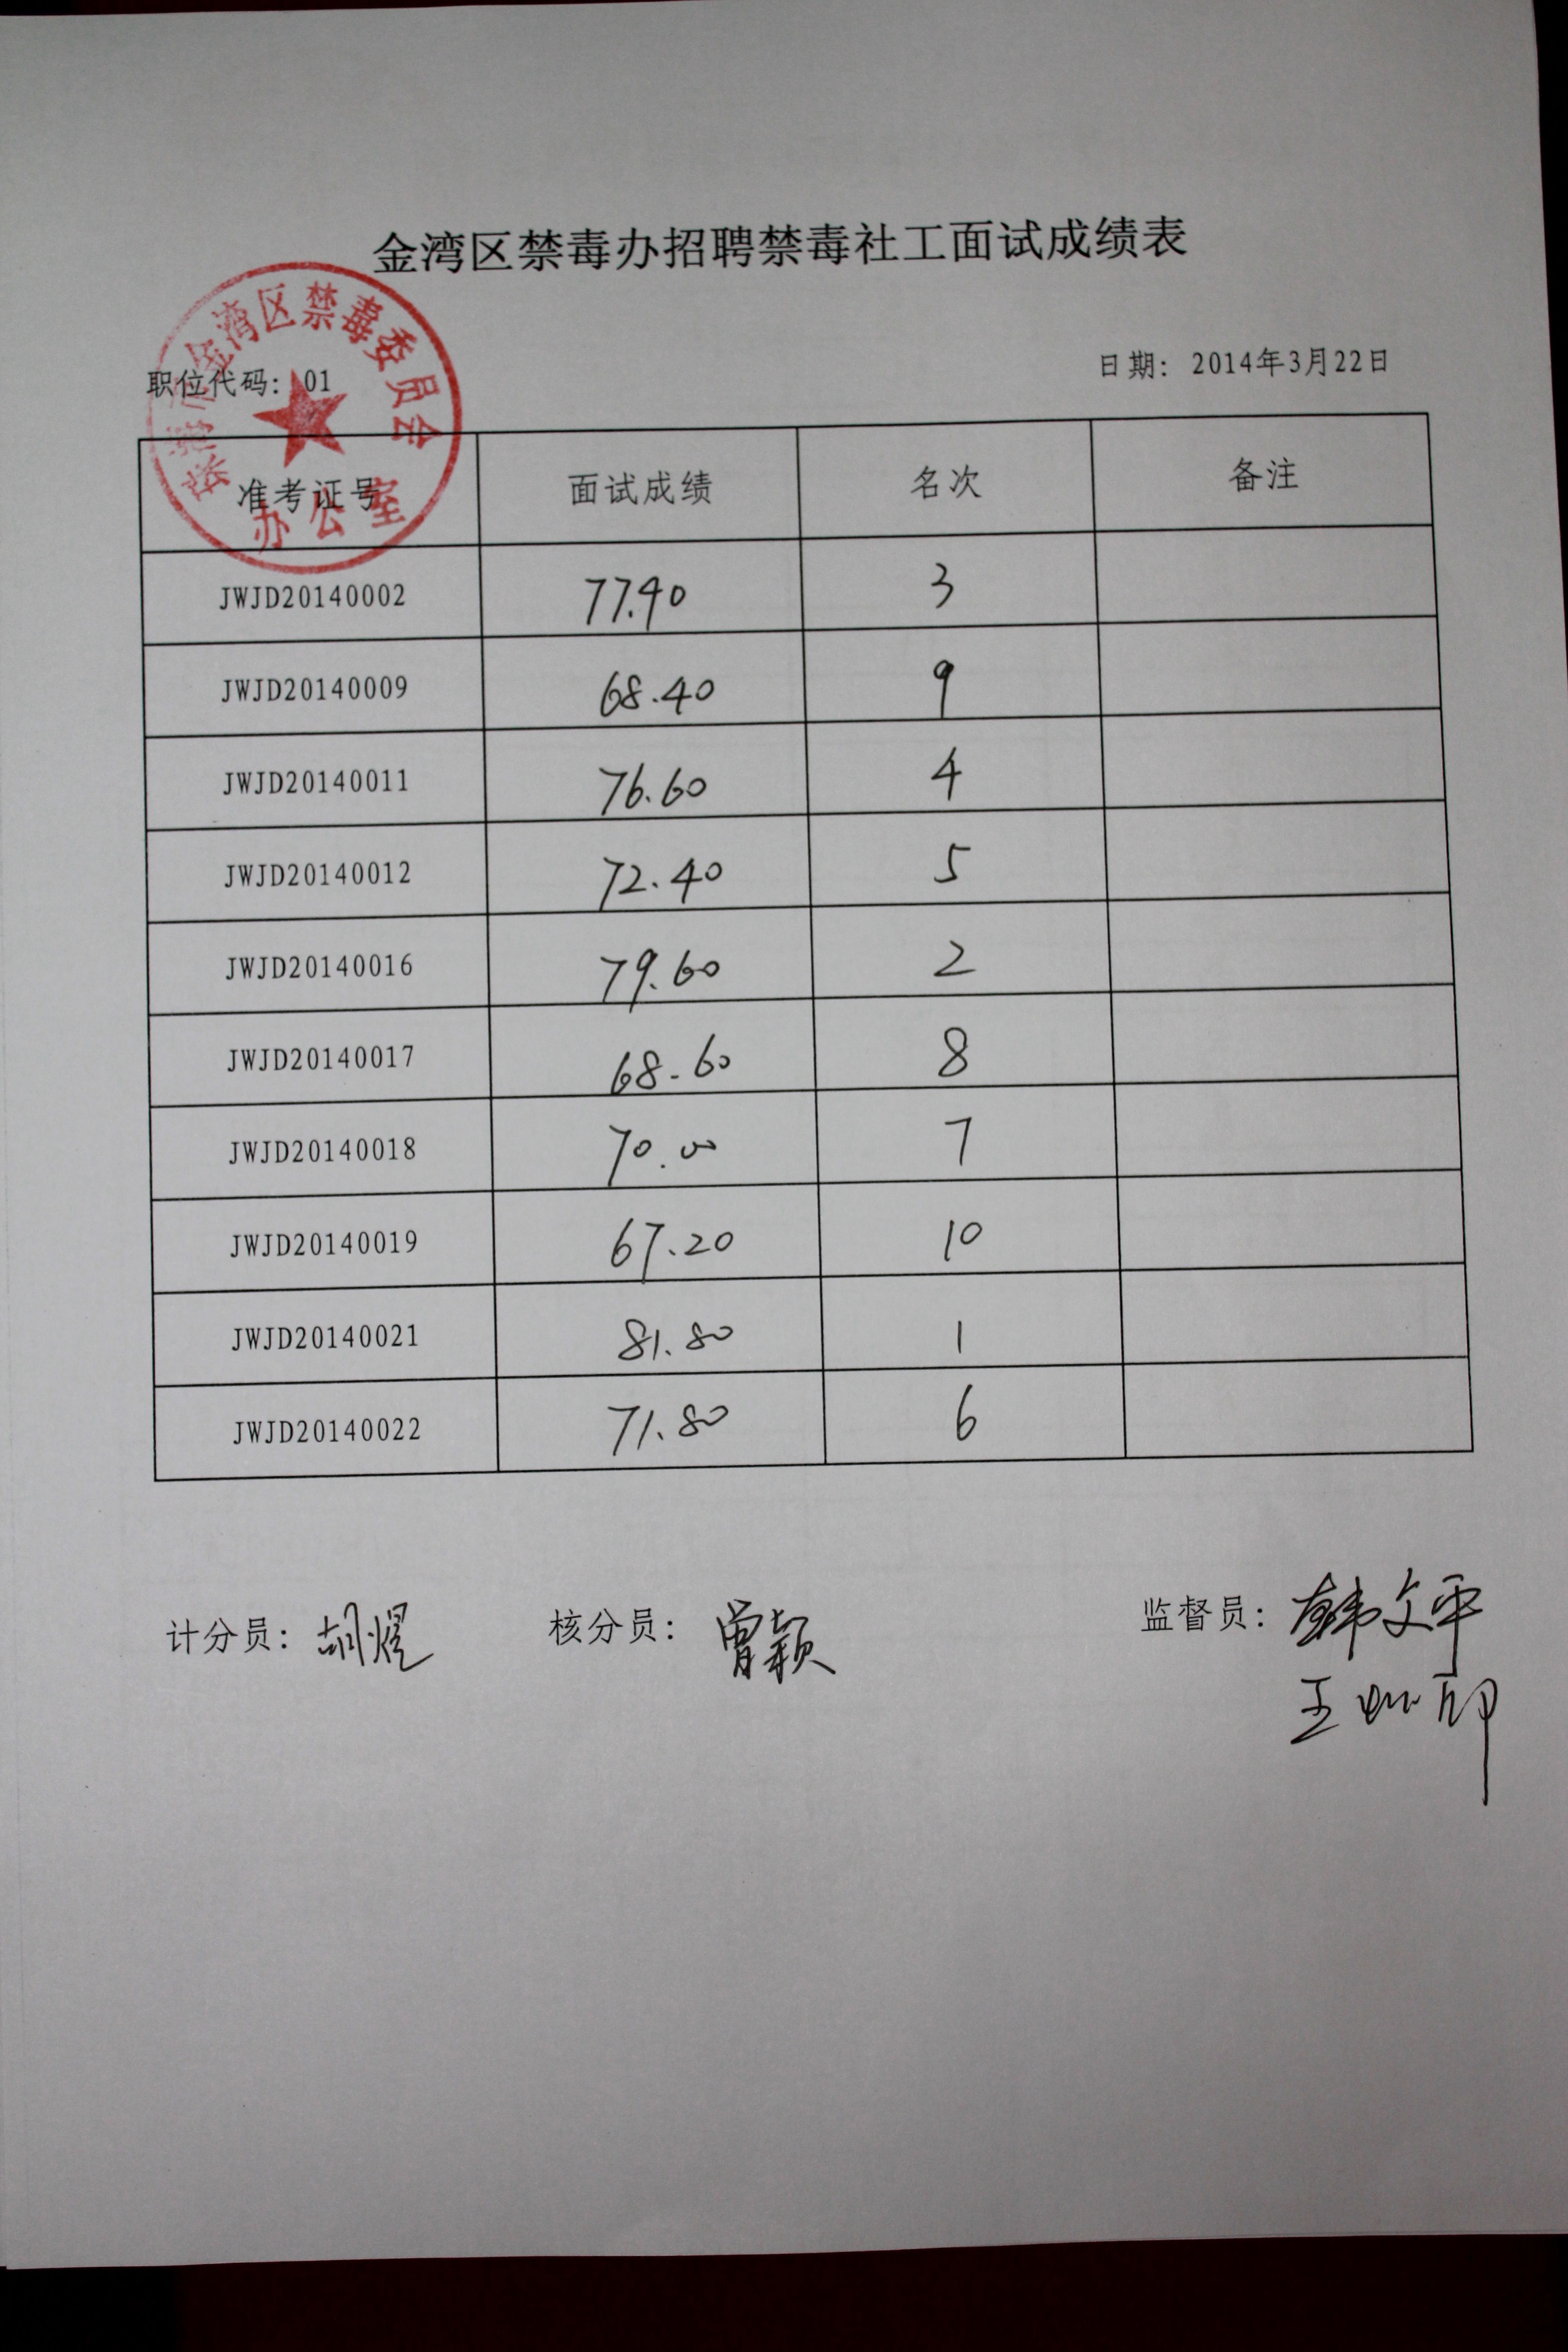 金湾区禁毒办招聘禁毒社工面试成绩表
珠海市金湾区禁毒委员会
办公室
职位代码: 01 日期: 2014年3月22日
准考证号 面试成绩 名次 备注
JWJD20140002 77.40 3
JWJD20140009 68.40 9
JWJD20140011 76.60 4
JWJD20140012 72.40 5
JWJD20140016 79.60 2
JWJD20140017 68.60 8
JWJD20140018 70.00 7
JWJD20140019 67.20 10
JWJD20140021 81.80 1
JWJD20140022 71.80 6
计分员: 胡煜 核分员: 曾颖 监督员: 韩文平
王